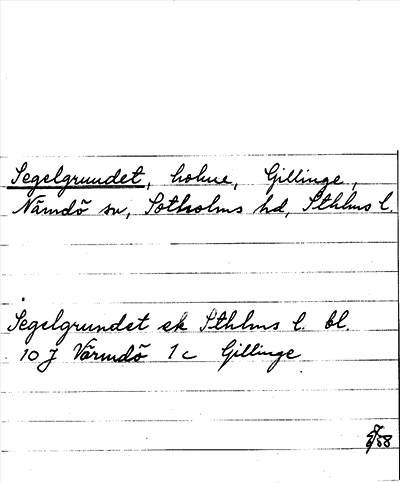 Segelgrundet, holme, Gillinge,
Nämdö sn, Sotholms hd, Sthlms l.
Segelgrundet ek Sthlms l. bl.
10 J Värmdö 1 c Gillinge